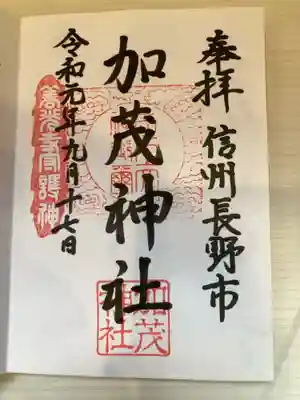 奉拝 信州長野市
加茂神社
令和元年九月十七日
善光寺守護神
加茂
神社